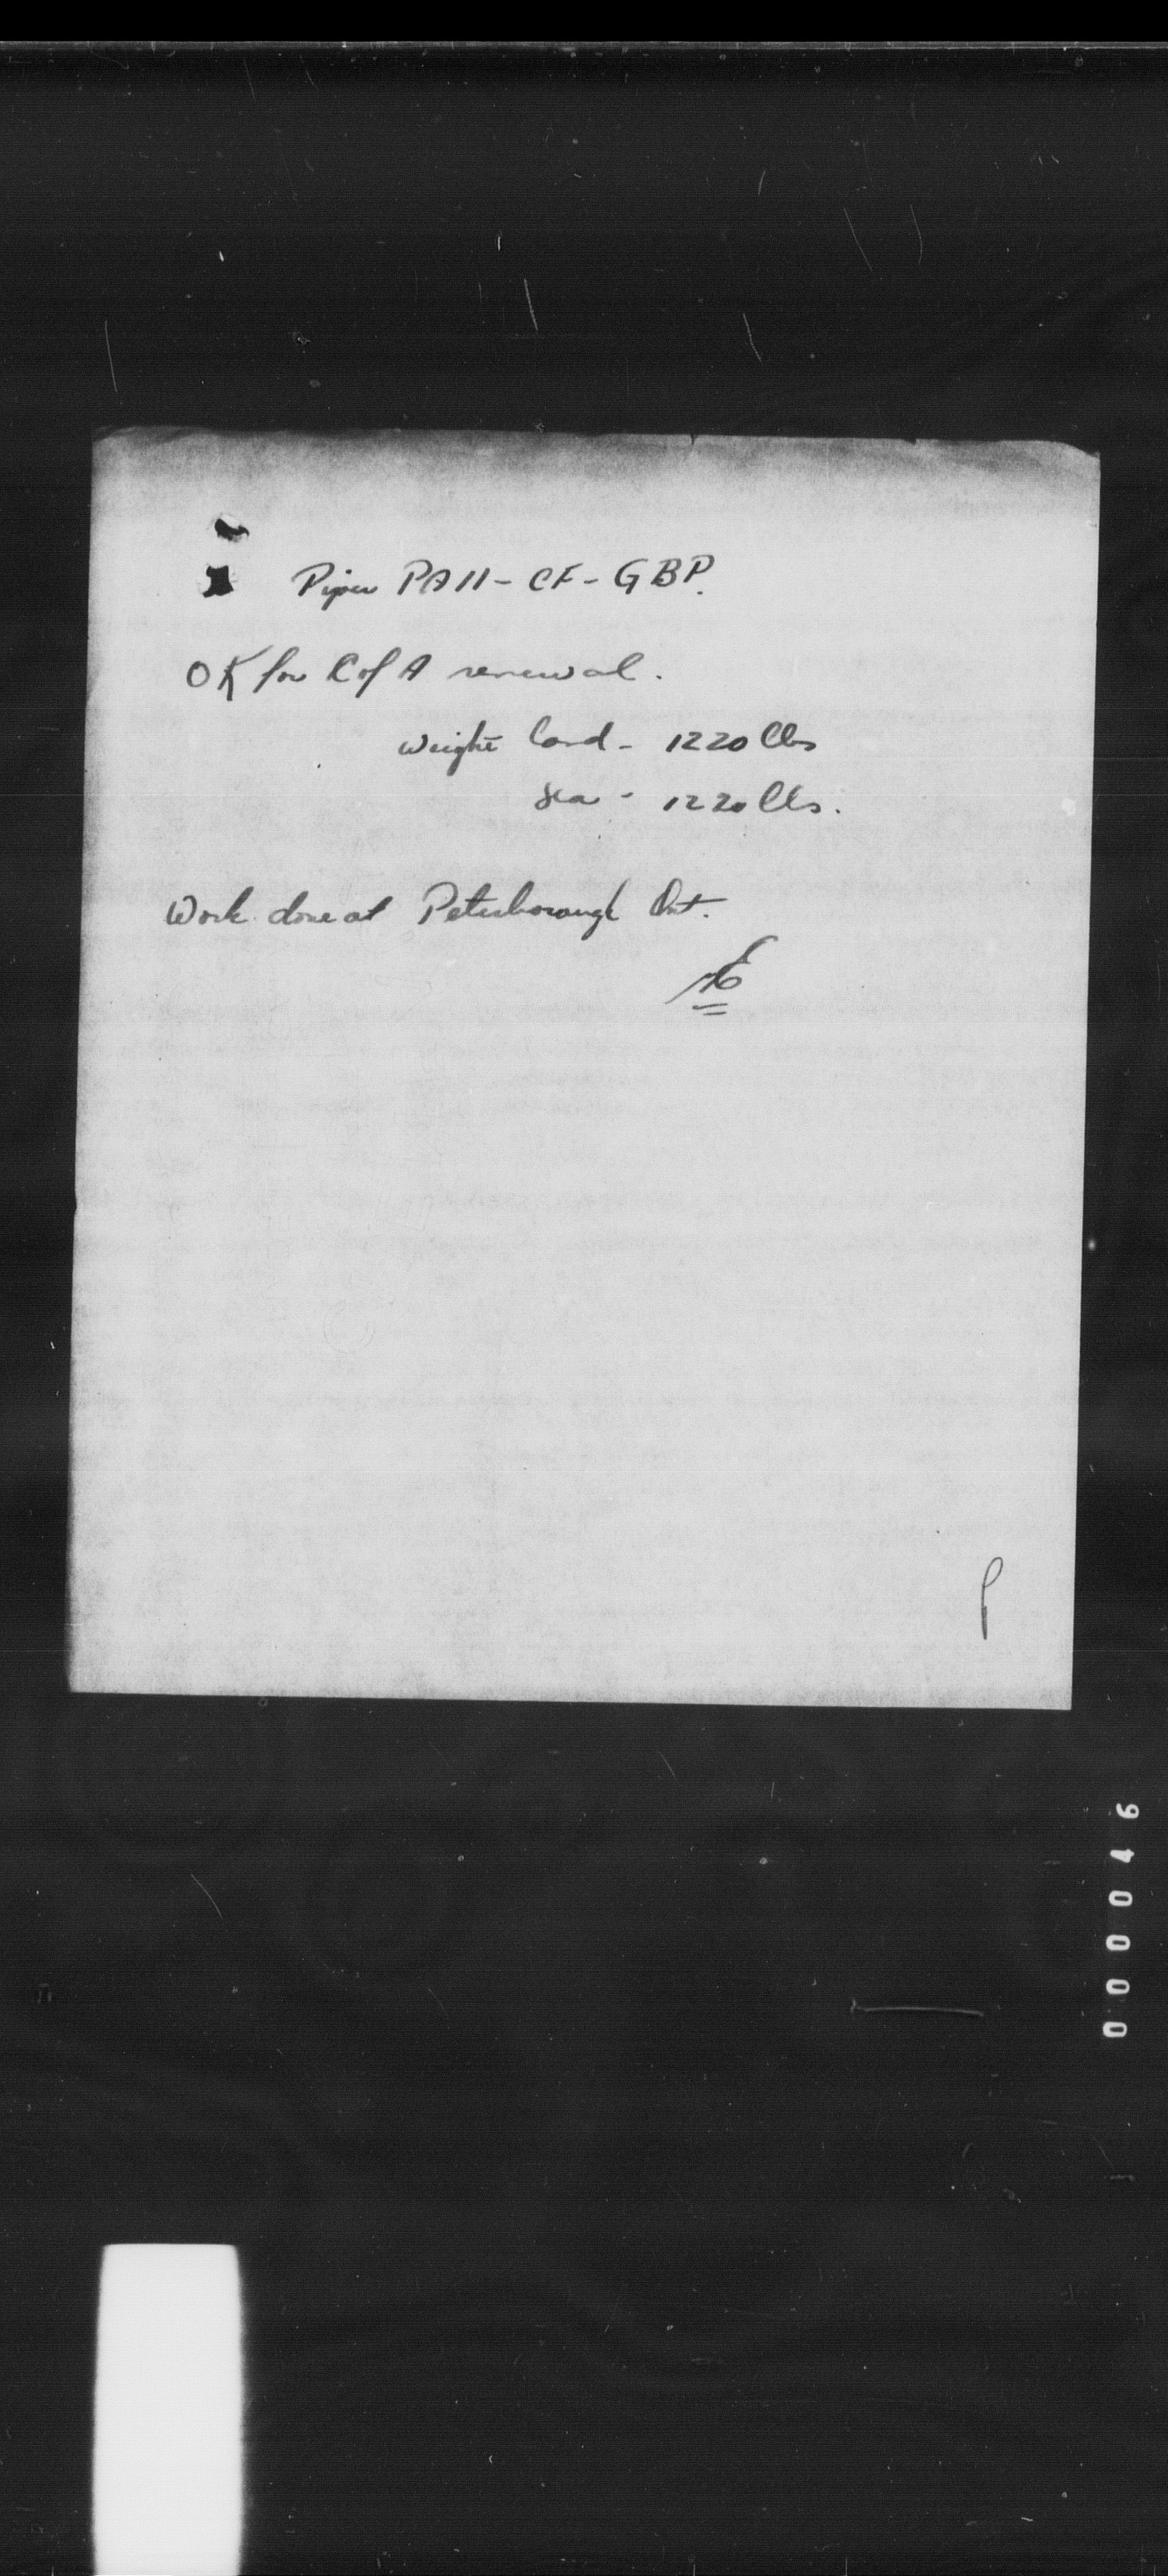 Piper PA11 - CF - GBP.
OK for C of A renewal.
Weight land - 1220 lbs
sea - 1220 lbs.
Work done at Peterborough Ont.
P
000046